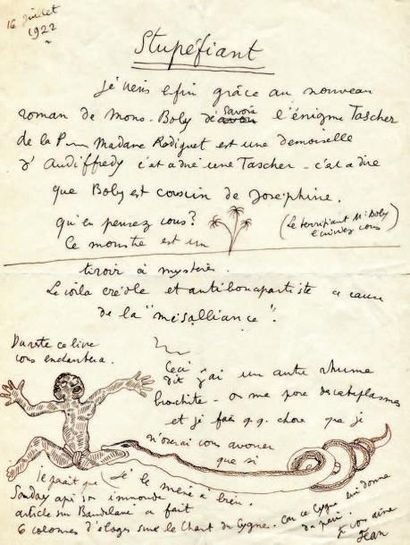 16 Juillet
1922
Stupéfiant
Je viens enfin grâce au nouveau
roman de Mons. Boby de savoir l'énigme Tascher
de la P Madame Radiguet est une demoiselle
d'Audiffredy c'at a dire une Tascher - c'at a dire
que Boby est cousin de Joséphine.
qu'en pensez vous?
(Le terrifiant M. Boby
écrivez vous)
Ce monstre est un
tiroir à mystères.
Le voila créole et antibonapartiste a cause
de la "mésalliance".
Du reste ce livre
vous enchantera.
Ceci dit j'ai un autre rhume
bronchite - on me pose des cataplasmes
et je fais q.q. chose que je
n'oserai vous avouer
que si
je le mène a bien.
Il parait que
Souday après son immonde
article sur Baudelaire a fait
6 colonnes d'éloges sur le Chant du Cygne. Car ce Cygne lui donne
Je vous aime
Jean